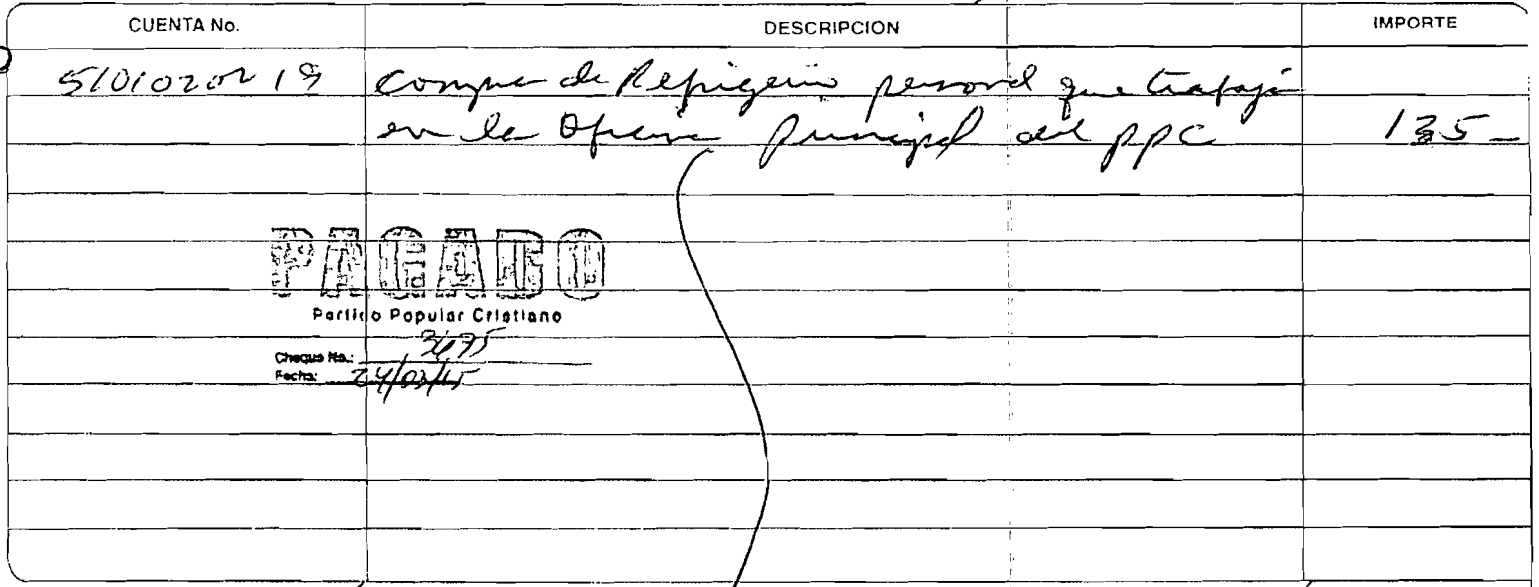 CUENTA No. DESCRIPCION IMPORTE
5101020219 Compra de Refrigerio personal que trabaja
en la Oficina principal del ppc 135-
PAGADO
Partido Popular Cristiano
Cheque No.: 3675
Fecha: 24/03/15